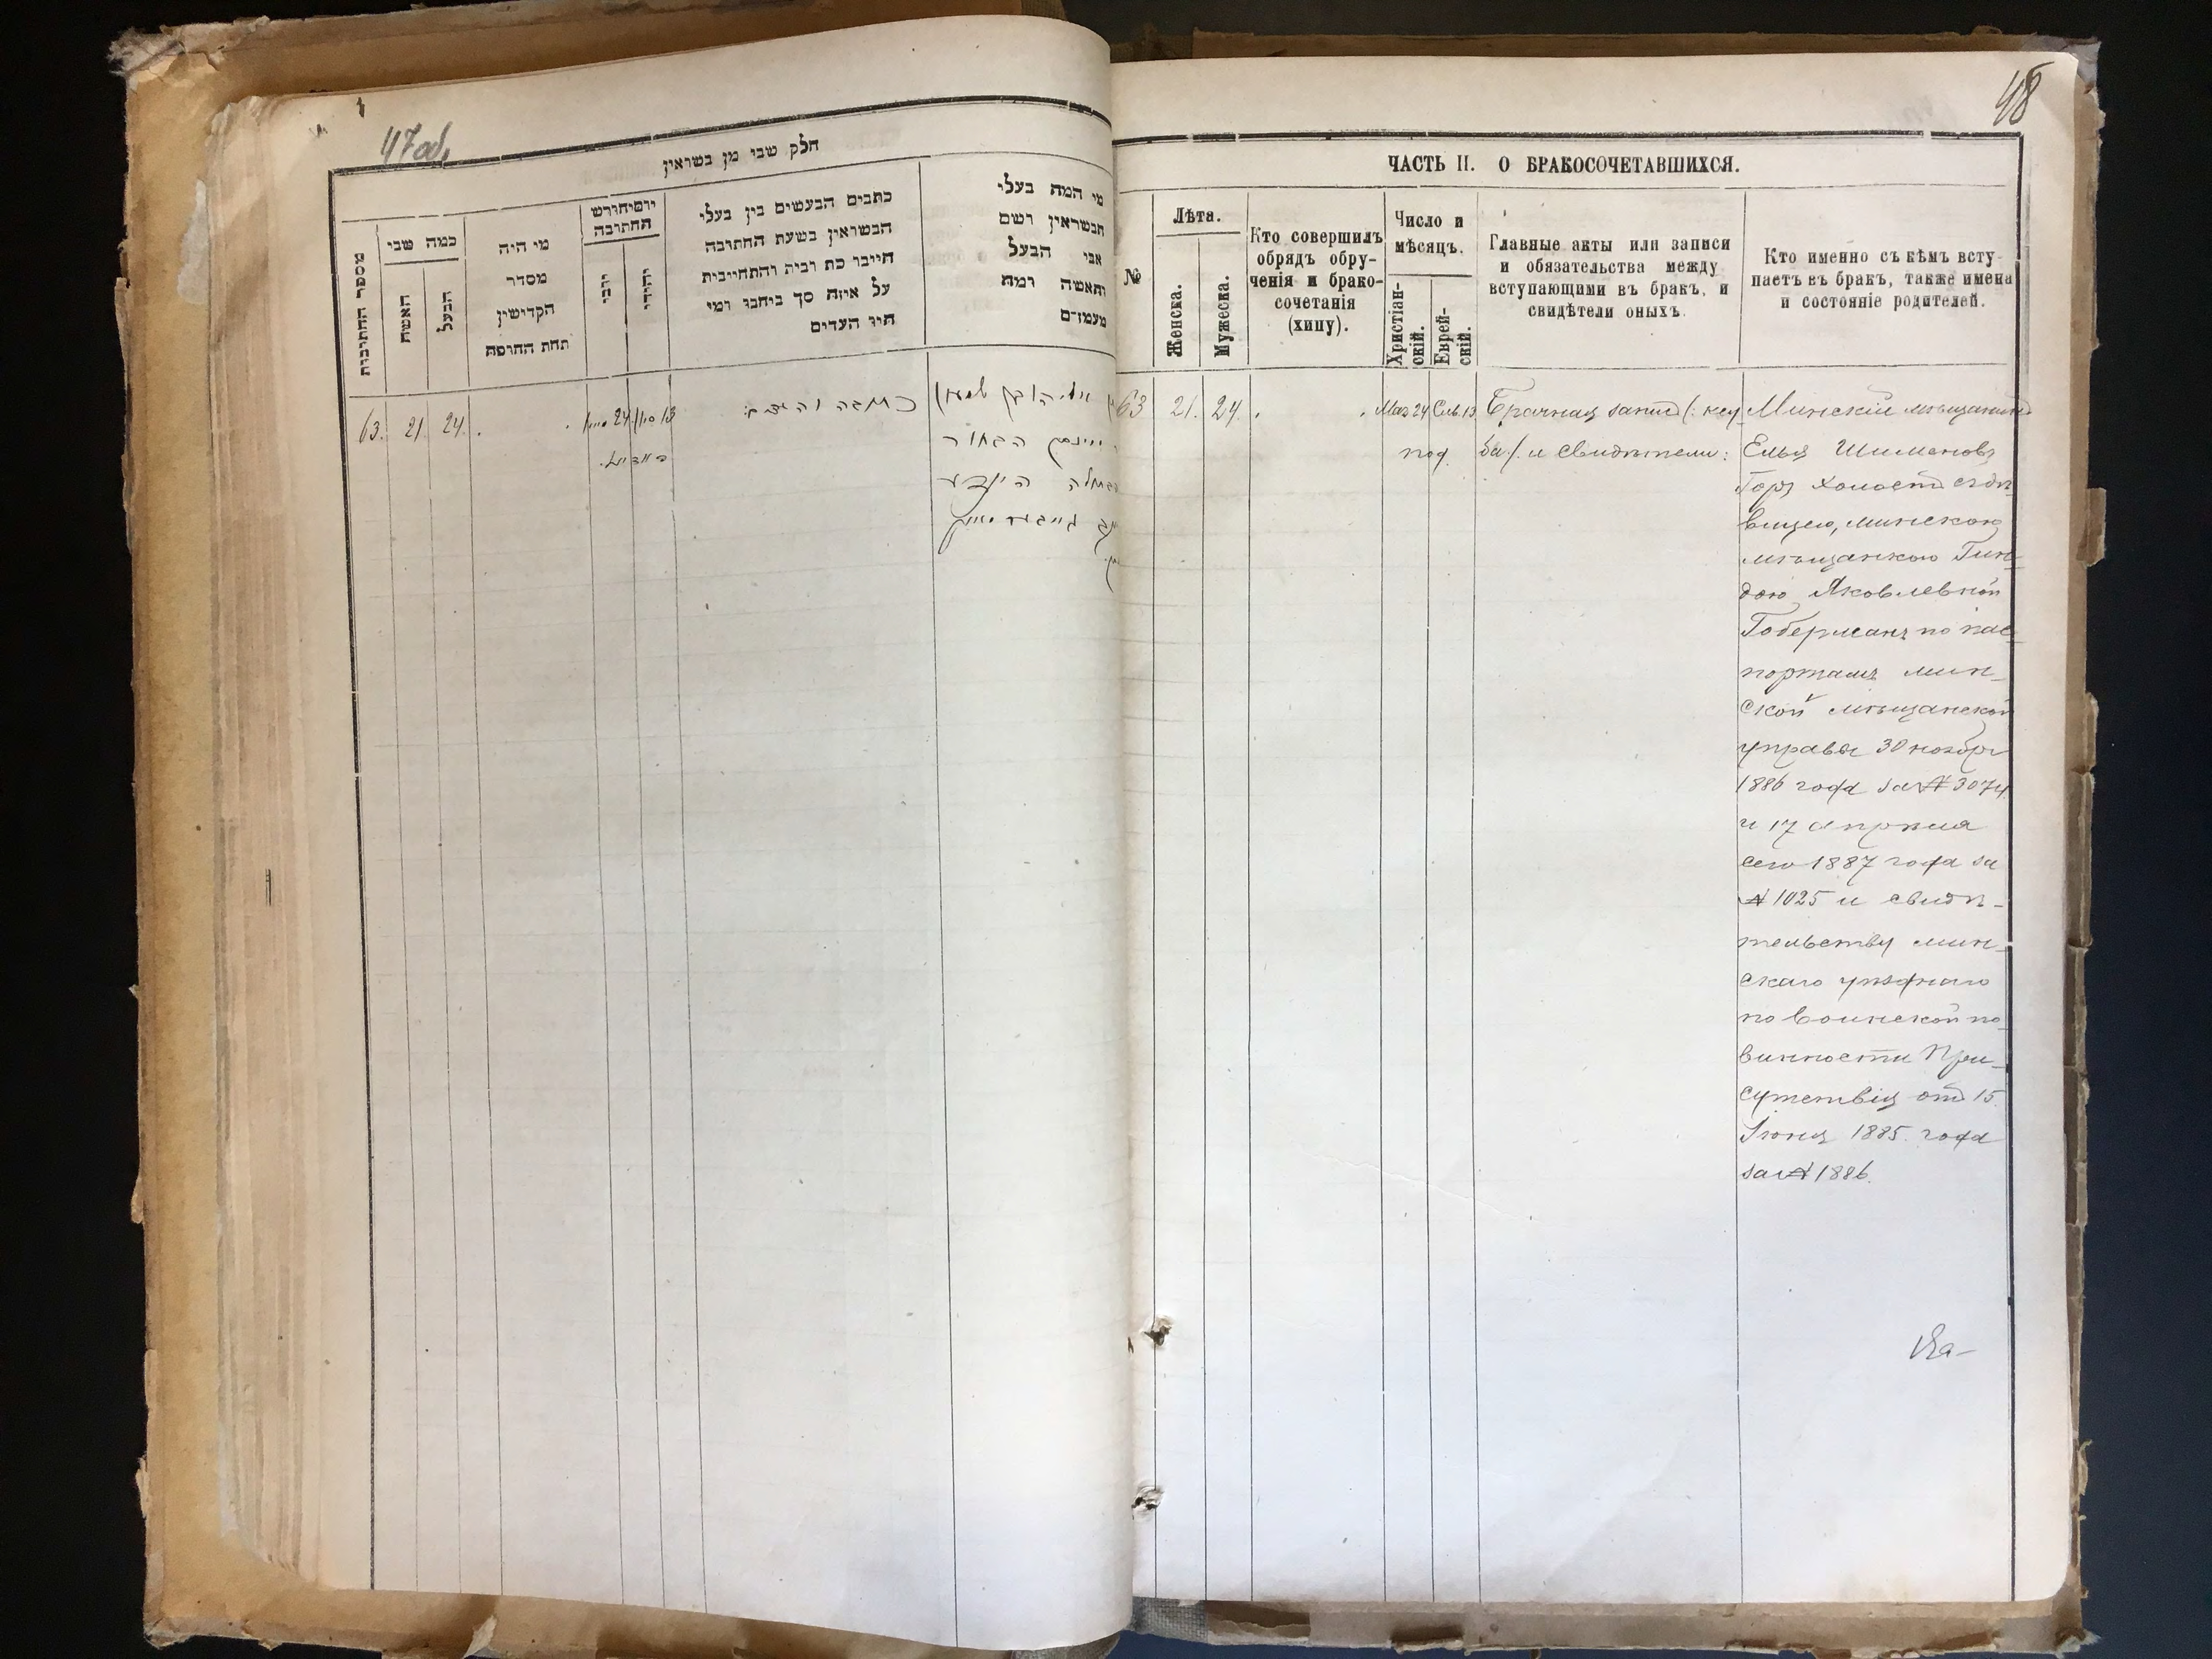 47об.
חלק שני מן נשואין
מספר החתונות
כמה שני
האשה
הבעל
מי היה
מסדר
הקדישין
תחת החופה
יום וחודש
החתונה
רוסי
יהודי
כתבים הנעשים בין בעלי
הנשואין בשעת החתונה
חייבו כת ובית והתחייבות
על איזה סך ביחבו ומי
היו העדים
מי המה בעלי
הנשואין ושם
אבי הבעל
והאשה ומה
מעמדם
63. 21. 24. 24 מייא 13 סיון כתובה והעדים:
הבחור
48
ЧАСТЬ II. О БРАКОСОЧЕТАВШИХСЯ.
№
Лѣта.
Женска.
Мужеска.
Кто совершилъ
обрядъ обру-
ченія и брако-
сочетанія
(хипу).
Число и
мѣсяцъ.
Христіан-
скій.
Еврей-
скій.
Главные акты или записи
и обязательства между
вступающими въ бракъ, и
свидѣтели оныхъ.
Кто именно съ кѣмъ всту-
паетъ въ бракъ, также имена
и состояніе родителей.
63 21. 24. Мая 24 Сив. 13
Брачная запись (: кту
ба:) и свидѣтели:
Минскій мѣщанинъ
Елья Шимановъ
Горъ холостъ съ дѣ-
вицею, минскою
мѣщанкою Гин-
дою Яковлевной
Гоберманъ по пас-
портамъ мин-
ской мѣщанской
управы 30 ноября
1886 года за № 3074
и 17 апрѣля
сего 1887 года за
№ 1025 и свидѣ-
тельству мин-
скаго уѣзднаго
по воинской по-
винности При-
сутствія отъ 15
Іюня 1885. года
за № 1886.